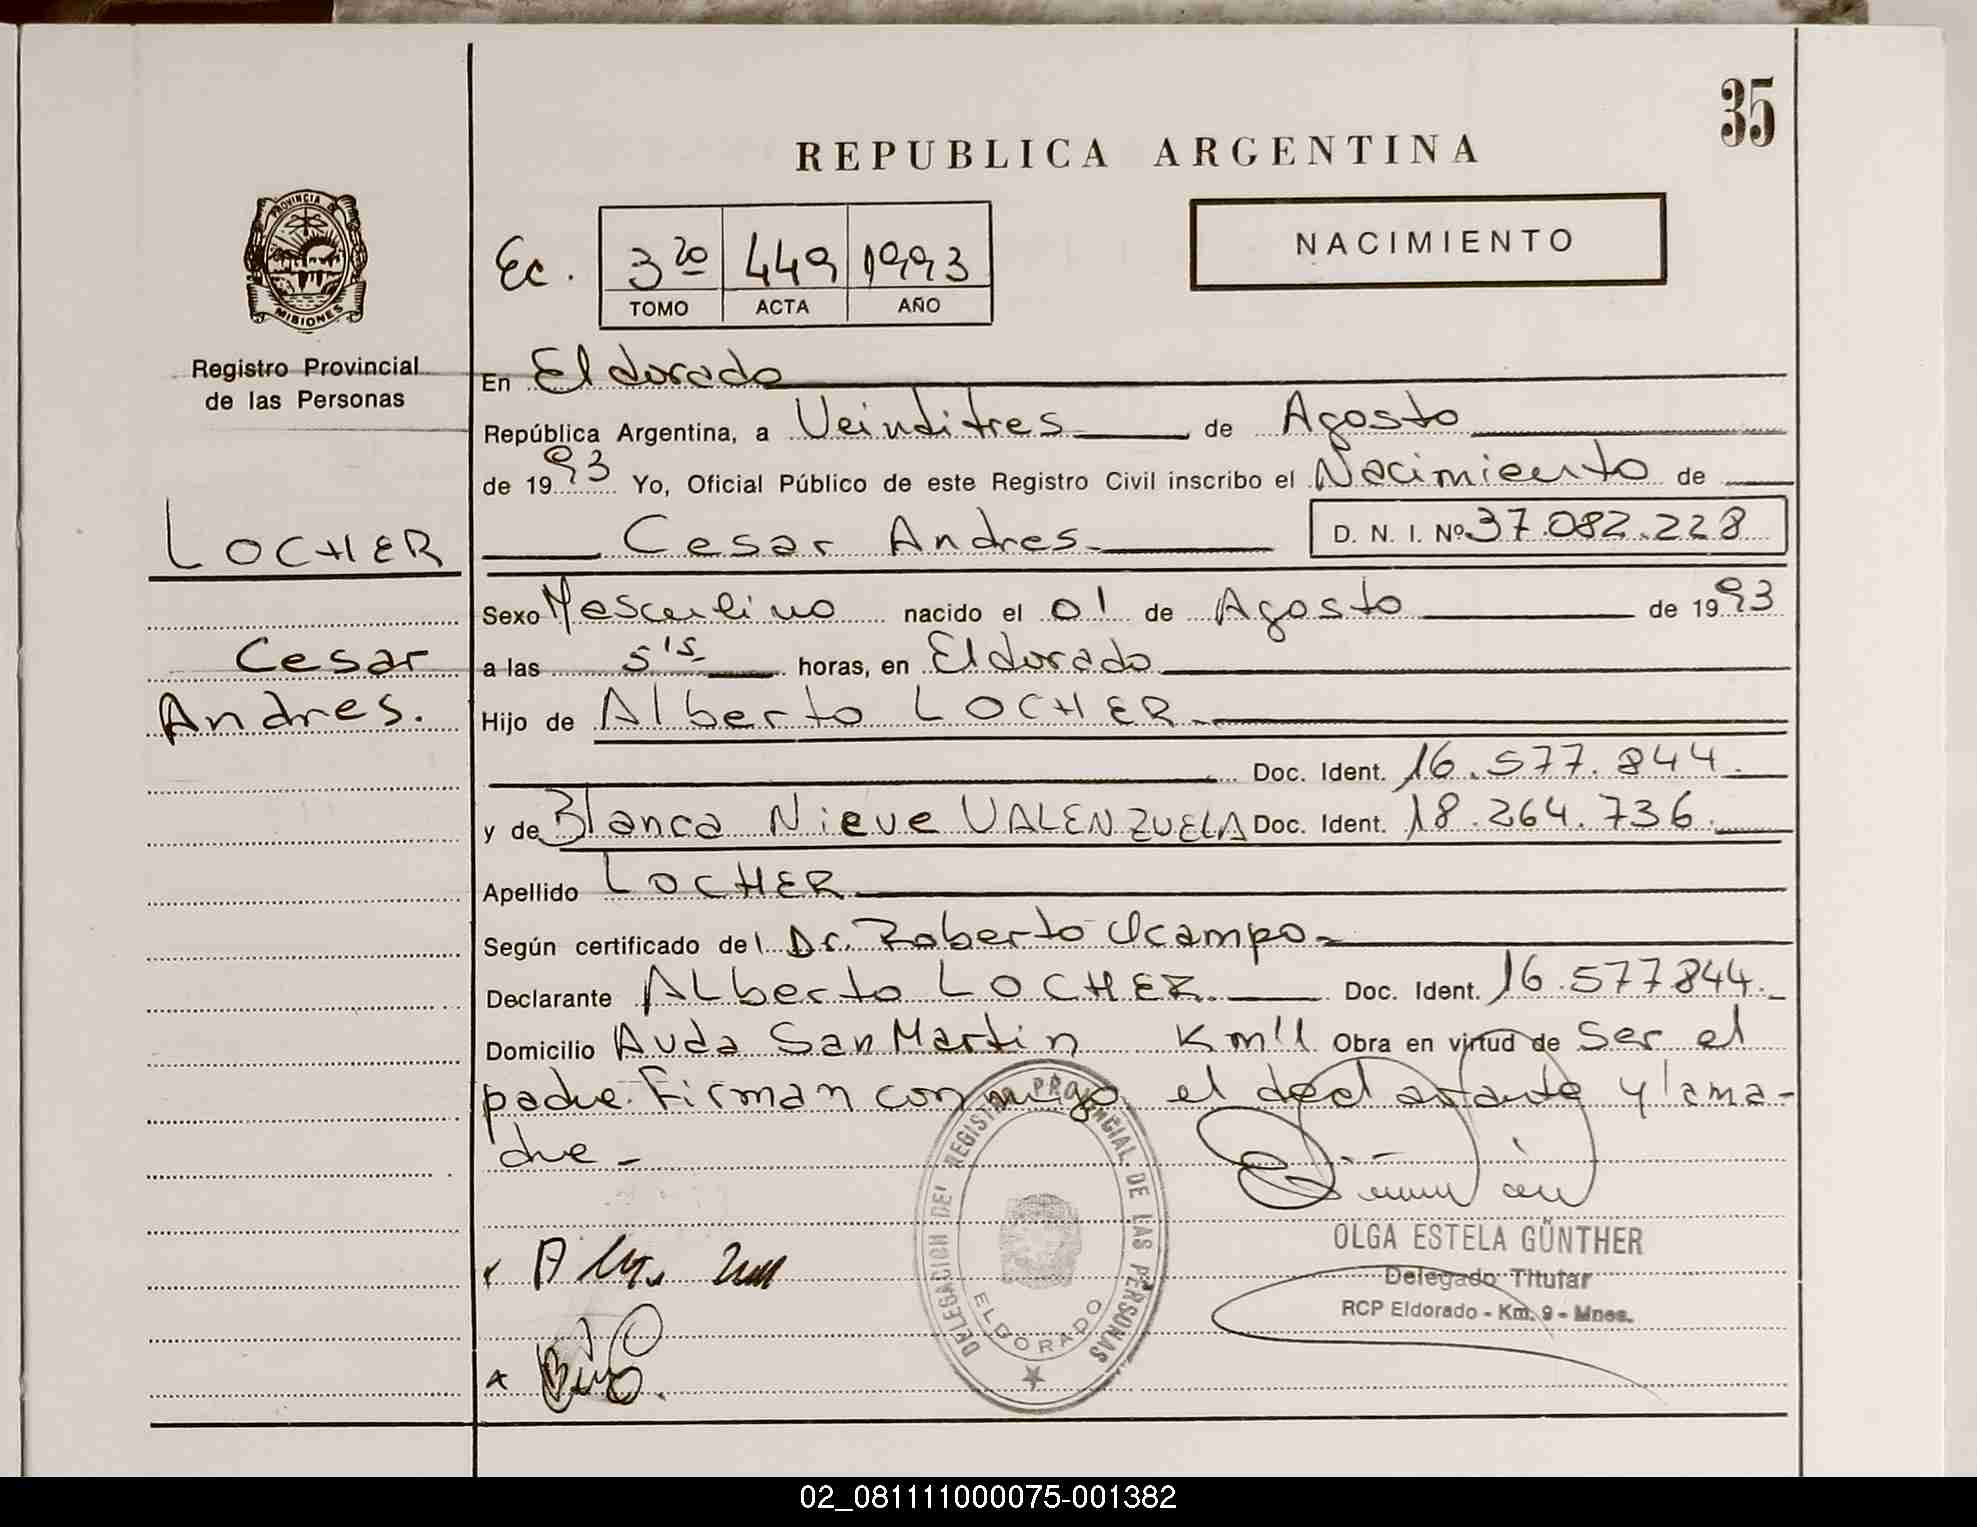 35
REPUBLICA ARGENTINA
PROVINCIA DE
MISIONES
Registro Provincial
de las Personas
NACIMIENTO
Ec. 3ro 449 1993
TOMO ACTA AÑO
En Eldorado
República Argentina, a Veintitres de Agosto
de 1993 Yo, Oficial Público de este Registro Civil inscribo el Nacimiento de
LOCHER
Cesar Andres D. N. I. Nº 37.082.228
Sexo Masculino nacido el 01 de Agosto de 1993
Cesar
Andres.
a las 5'15 horas, en Eldorado
Hijo de Alberto LOCHER
Doc. Ident. 16.577.844.
y de Blanca Nieve VALENZUELA Doc. Ident. 18.264.736.
Apellido LOCHER
Según certificado del Dr. Roberto Ocampo
Declarante ALberto LOCHER Doc. Ident. 16.577844.
Domicilio Avda San Martin Km 11 Obra en virtud de ser el
padre. Firman conmigo el declarante y la ma-
dre -
DELEGACION DEL REGISTRO PROVINCIAL DE LAS PERSONAS
ELDORADO
OLGA ESTELA GÜNTHER
Delegado Titular
RCP Eldorado - Km. 9 - Mnes.
02_081111000075-001382